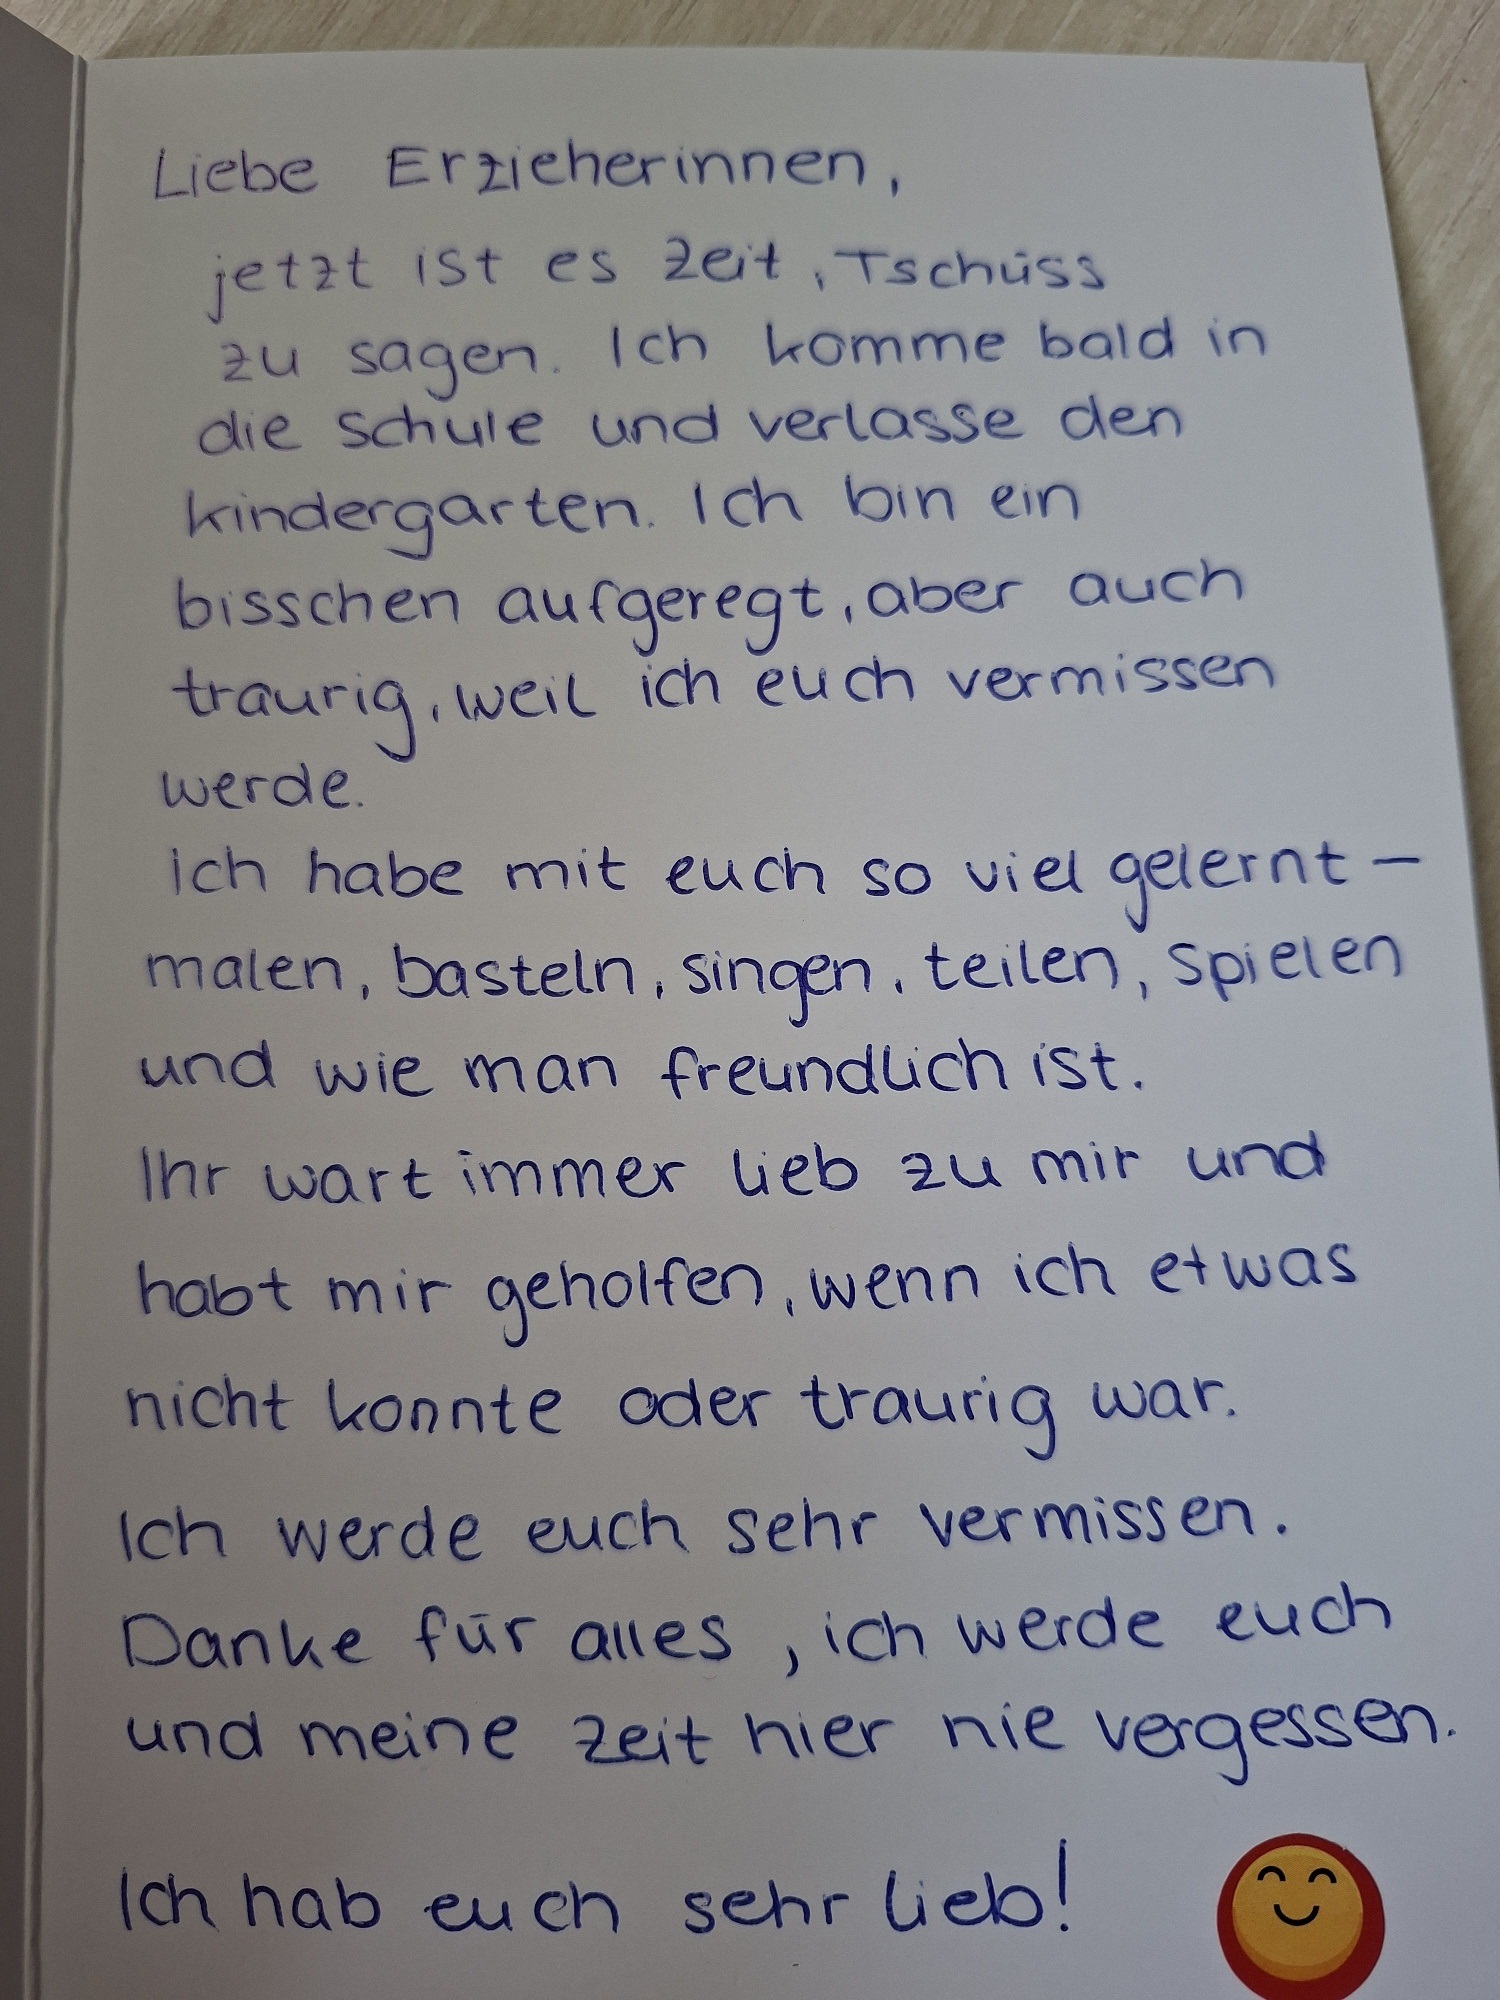 Liebe Erzieherinnen,
jetzt ist es Zeit, Tschüss
zu sagen. Ich komme bald in
die Schule und verlasse den
kindergarten. Ich bin ein
bisschen aufgeregt, aber auch
traurig, weil ich euch vermissen
werde.
Ich habe mit euch so viel gelernt –
malen, basteln, singen, teilen, spielen
und wie man freundlich ist.
Ihr wart immer lieb zu mir und
habt mir geholfen, wenn ich etwas
nicht konnte oder traurig war.
Ich werde euch sehr vermissen.
Danke für alles, ich werde euch
und meine Zeit hier nie vergessen.
Ich hab euch sehr lieb!